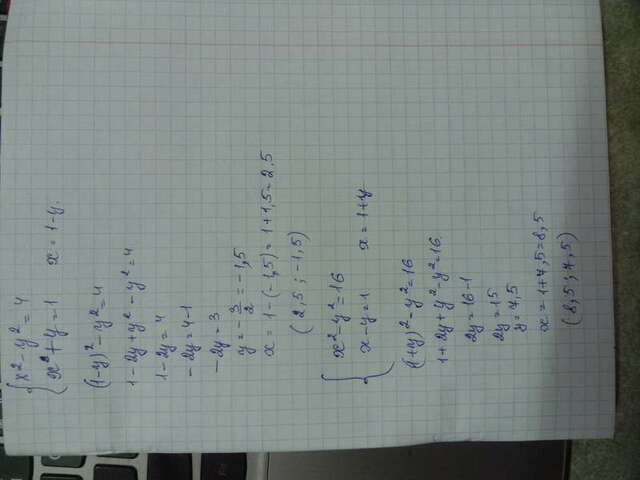 x² - y² = 4
x² + y = 1 x = 1-y.
(1-y)² - y² = 4
1 - 2y + y² - y² = 4
1 - 2y = 4
- 2y = 4-1
- 2y = 3
y = - 3/2 = -1,5
x = 1 - (-1,5) = 1+1,5 = 2,5
(2,5 ; -1,5)
x² - y² = 16
x - y = 1 x = 1+y
(1+y)² - y² = 16
1 + 2y + y² - y² = 16
2y = 16-1
2y = 15
y = 7,5
x = 1+7,5 = 8,5
(8,5 ; 7,5)